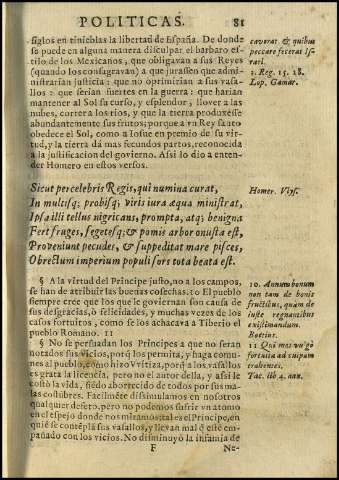 POLITICAS. 81
siglos en tinieblas la libertad de España. De donde
se puede en alguna manera disculpar el barbaro esti-
lo de los Mexicanos, que obligavan a sus Reyes
(quando los consagravan) a que jurassen que admi-
nistrarian justicia: que no oprimirian a sus vasa-
llos: que serian fuertes en la guerra: que harian
mantener al Sol su curso, y esplendor, llover a las
nubes, correr a los rios, y que la tierra produxesse
abundantemente sus frutos; porque a vn Rey santo
obedece el Sol, como a Iosue en premio de su vir-
tud, y la tierra dá mas fecundos partos, reconocida
a la justificacion del govierno. Assi lo dio a enten-
der Homero en estos versos.
Sicut percelebris Regis, qui numina curat,
In multisq; probisq; viris iura æqua ministrat,
Ipsa illi tellus nigricans, prompta, atq; benigna
Fert fruges, segetesq; & pomis arbor onusta est,
Proveniunt pecudes, & suppeditat mare pisces,
Ob rectum imperium populi sors tota beata est.
§ A la virtud del Principe justo, no a los campos,
se han de atribuir las buenas cosechas. 10 El Pueblo
siempre cree que los que le goviernan son causa de
sus desgracias, ò felicidades, y muchas vezes de los
casos fortuitos, como se los achacava a Tiberio el
pueblo Romano. 11
§ No se persuadan los Principes a que no seran
notados sus vicios, porq̃ los permita, y haga comu-
nes al pueblo, como hizo Vvitiza, porq̃ a los vasallos
es grata la licencia, pero no el autor della, y assi le
costò la vida, siēdo aborrecido de todos por sus ma-
las costūbres. Facilmēte dissimulamos en nosotros
qualquier defeto, pero no podemos sufrir vn atomo
en el espejo donde nos miramos: tal es el Principe, en
quiē se contēplā sus vasallos, y llevan mal q̃ estè em-
pañado con los vicios. No disminuyò la infamia de
F Ne-
caverat & quibus
peccare fecerat Is-
rael.
3. Reg. 15. 18.
Lop. Gamar.
Homer. Vlys.
10. Annum bonum
non tam de bonis
fructibus, quàm de
iuste regnantibus
existimandum.
Boetius.
11 Qui mos vulgò
fortuita ad culpam
trahentes.
Tac. lib. 4. ann.